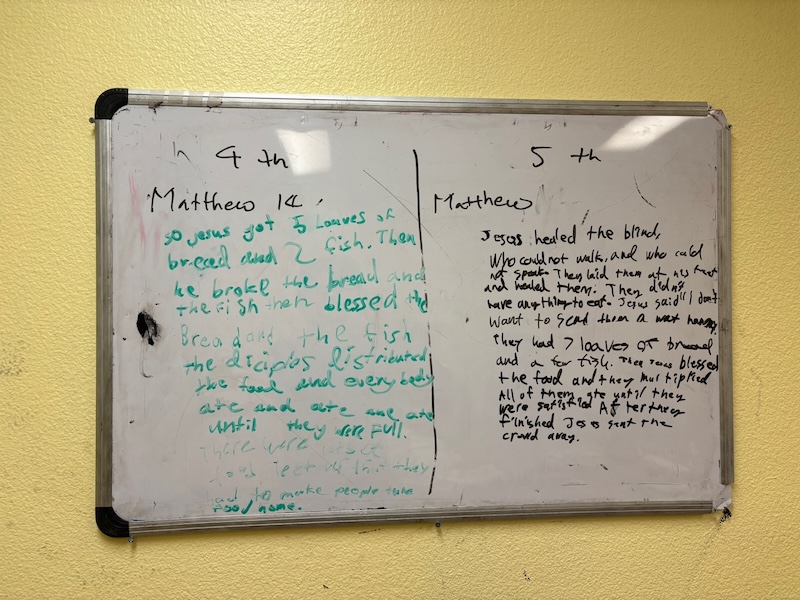 4 th
Matthew 14
so jesus got 5 loaves of
bread and 2 fish. Then
he broke the bread and
the fish then blessed the
Bread and the fish
the diciplos distributed
the food and everybody
ate and ate and ate
until they were full.
There were
they
had to make people take
food home.
5 th
Matthew
Jesus healed the blind,
who could not walk, and who cold
not speak. They laid them at his feet
and healed them. They didn't
have anything to eat. Jesus said "I don't
want to send them a way hungry
They had 7 loaves of bread
and a few fish. Then Jesus blessed
the food and they multiplied
All of them ate until they
were satisfied After they
finished Jesus sent the
crowd away.